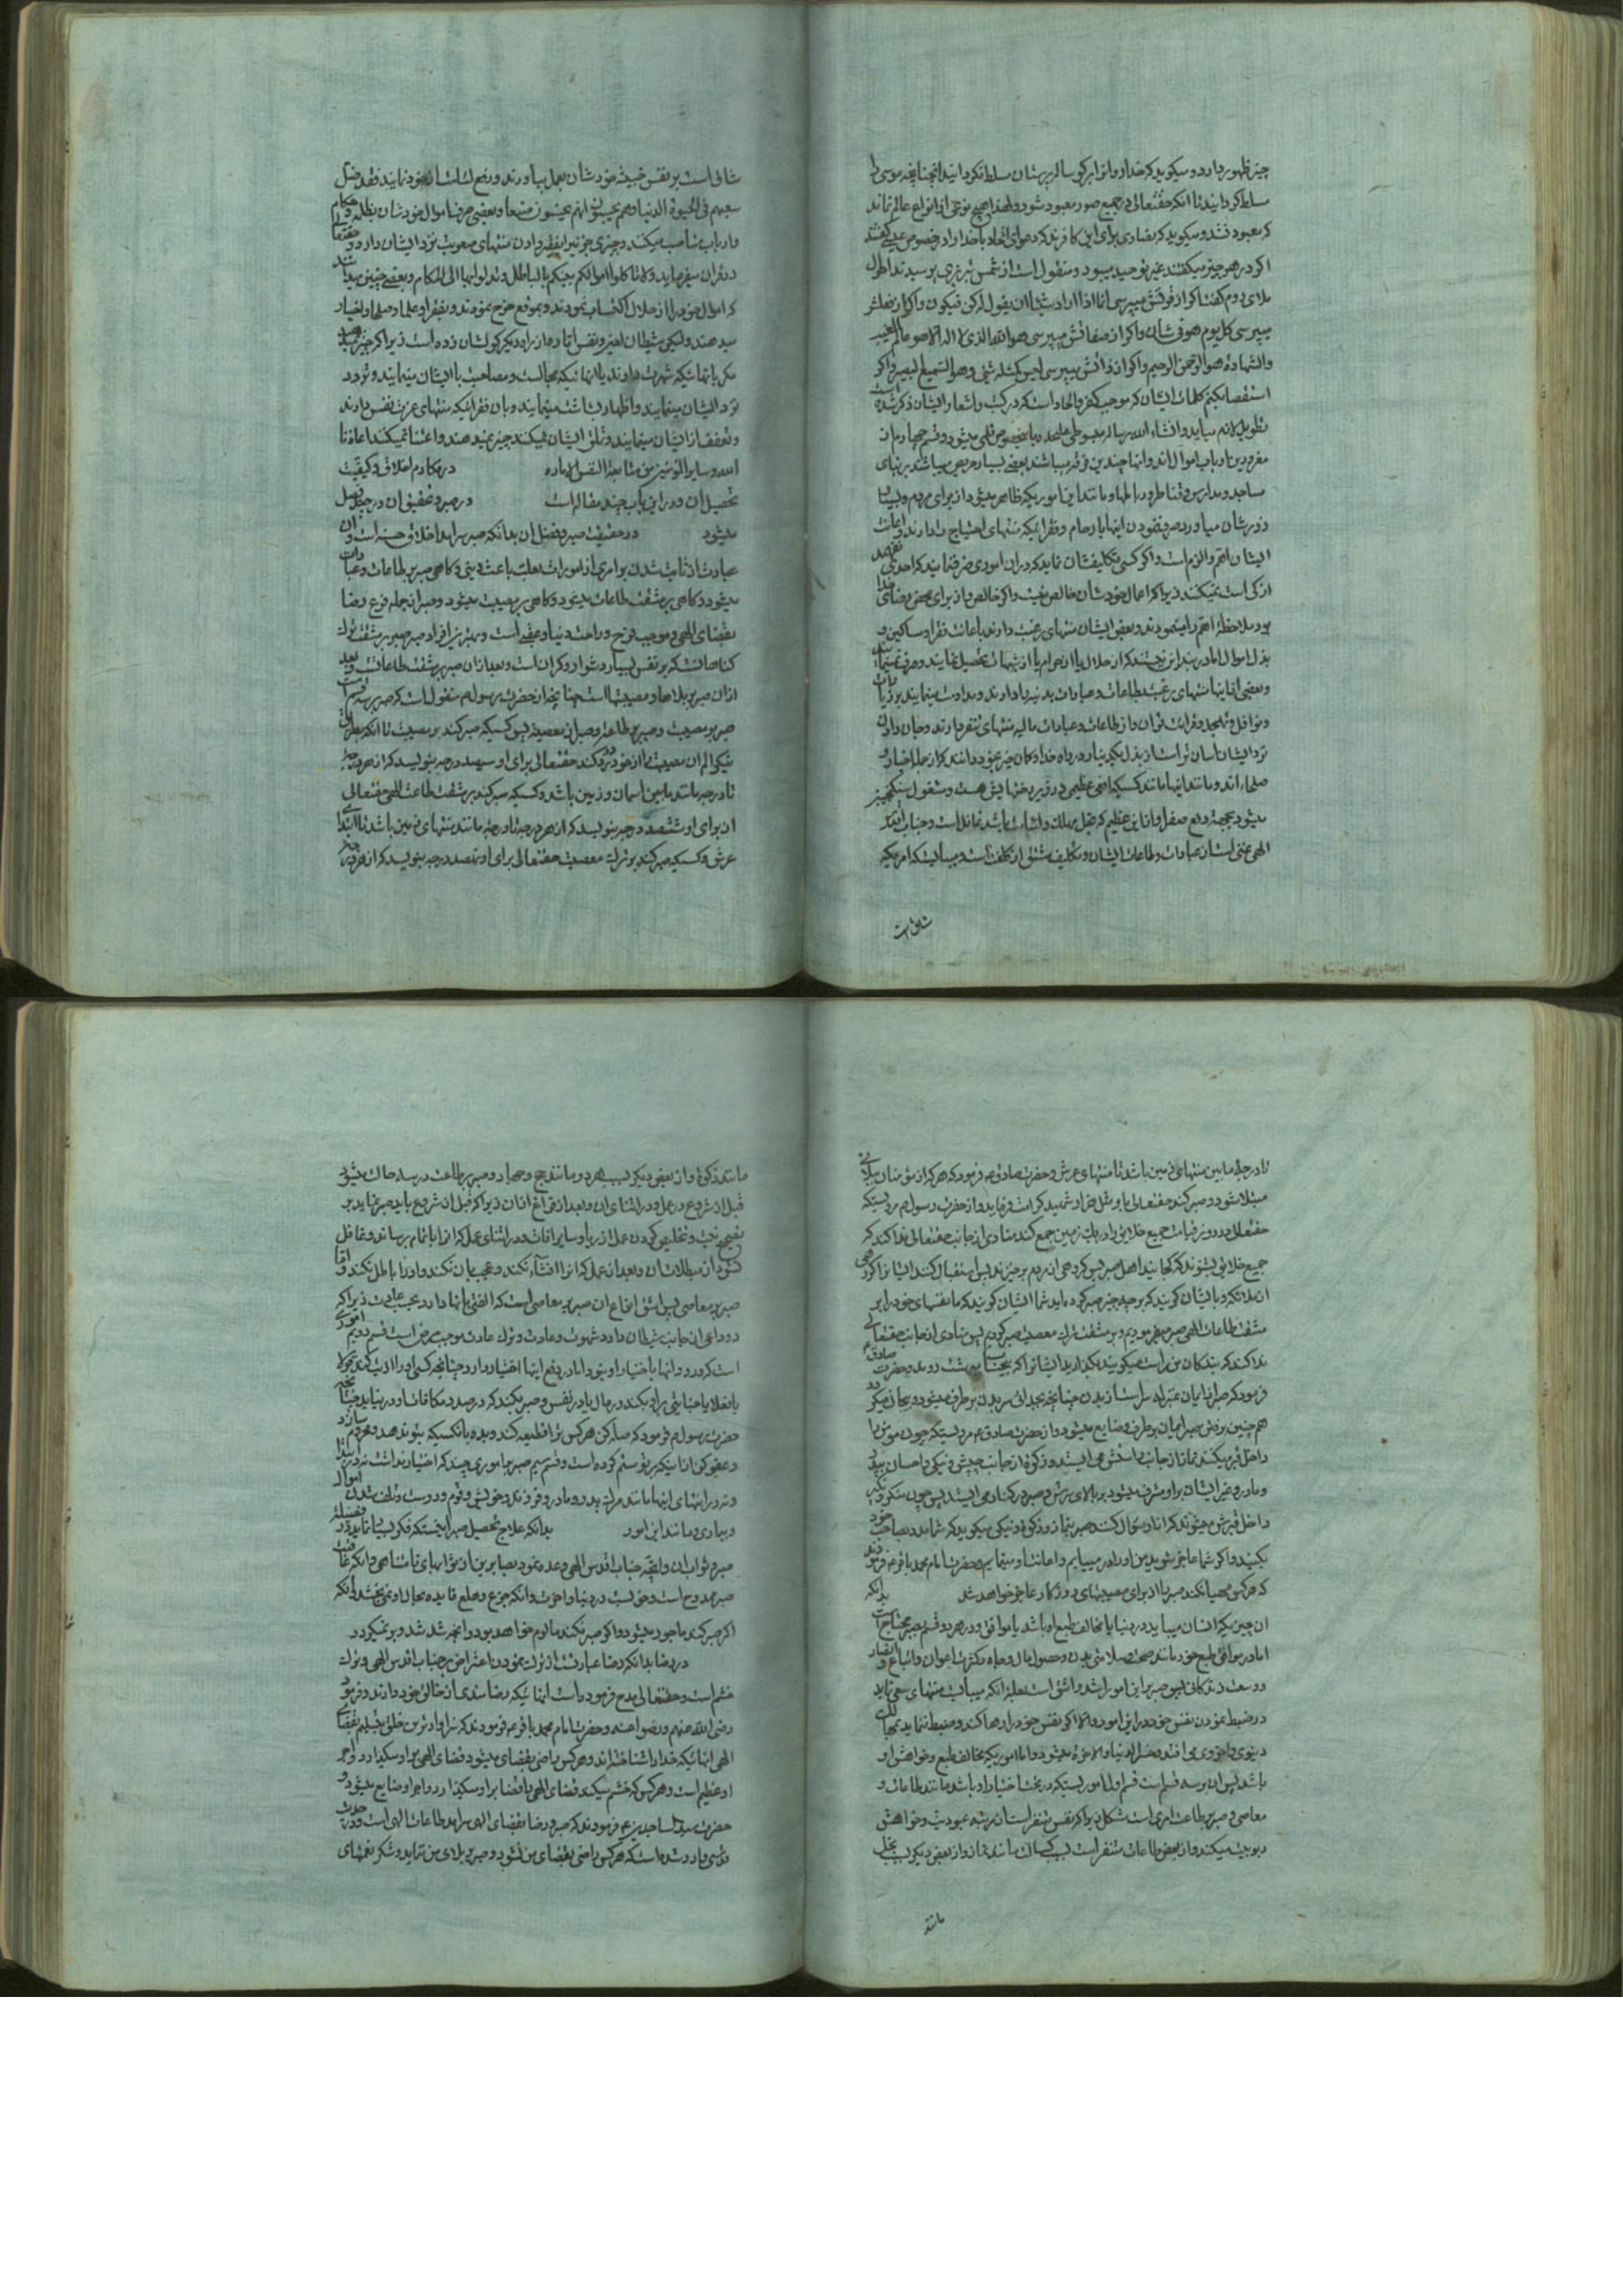 چیز ظهور دارد و میکوید که خدا و را بر کوساله پرستان مسلط نکردانید چنانچه موسی را
مسلط کردانید تا آنکه حقتعالی در جمیع صور معبود شود و لهذا هیچ نوعی از انواع عالم نماند
که معبود نشد و میکوید که نصاری برای این کافر شدند که
اکر در هر چیز میکفتند عین توحید میبود و منقول است از شمس تبریزی پرسیدند احوال
ملای روم کفت اکر از قولش میپرسی انما اذا اراد شیئا ان یقول له کن فیکون و اکر از فعلش
میپرسی کل یوم هو فی شان و اکر از صفاتش میپرسی هو الله الذی لا اله الا هو عالم الغیب
والشهادة هو الرحمن الرحیم و اکر از ذاتش میپرسی لیس کمثله شیء و هو السمیع البصیر و اکر
استقصا نکنم کلمات ایشان که موجب کفر و الحاد است که در کتب و اشعار ایشان ذکر شده است
تطویل لازم میاید و انشاء الله رساله مبسوطی علیحده باینخصوص قلمی میشود و قسم چهارم از
مغرورین ارباب اموال اند و اینها چندین فرقه میباشند بعضی بسیار حریص میباشند بر بنای
مساجد و مدارس و قناطر و رباطها و مانند این اموریکه ظاهر میشود از برای مردم
ایشان اهم و الزم است و اکر کسی تکلیفشان نماید که در آن اموری صرف نمایند که احدی
از کی است نمیکنند زیرا که اعمال خودشان خالص نیست و اکر خالص و از برای محض رضای خدا
بود ملاحظه اهم را مینمودند و بعضی ایشان منتهای رغبت دارند باعانت فقرا و مساکین و
بذل اموال اما در بند این نیستند که از حلال یا از حرام یا از شبهات تحصیل نمایند
و بعضی از اینها منتهای رغبت بطاعات و عبادات بدنیه را دارند و مداومت مینمایند بر
و نوافل و تهجد و قرائت قران و از طاعات و عبادات مالیه منتهای تنفر دارند و جان دادن
نزد ایشان آسان تر است از بذل یکدینار در راه خدا و کان خیر بخود دارند که از جمله اخیار و
صلحاء اند و مانند اینها مانند کسیکه افعی عظیمی در زیر رختهایش هست و مشغول سکنجبین
میشود بجهت دفع صفرا و از این عظیم که قبل مهلک و باشد غافل است و جناب اقدس
الهی غنی است از عبادات و طاعات ایشان و تکلیف مشتق از کلفت است و میبایست که امریکه
شاق است

شاق است بر نفس خبیثه خودشان بعمل بیاورند و رفع از خود نمایند فقد ضل
سعیهم فی الحیوة الدنیا و هم یحسبون انهم یحسنون صنعا و بعضی صرف اموال خودشان بظلمه و حکام
و ارباب مناصب میکنند و چیزی جزئی را بفقیر دادن منتهای صعوبت نزد ایشان دارد و حقتعالی
در قران میفرماید و لا تاکلوا اموالکم بینکم بالباطل و تدلوا بها الی الحکام و بعضی چنین
که اموال خود را از حلال اکتساب نمودند و بموقع خرج نمودند و بفقرا و علما و صلحا و اخیار
میدهند ولیکن شیطان لعین و نفس اماره از راه دیکر کولشان زده است زیرا که چیز نمیدهند
مکر بانهائیکه شهرت دارند یا انهائیکه مجالست و مصاحبت با ایشان مینمایند و تردد
نزد ایشان مینمایند و اظهار بشاشت مینمایند و بان فقرائیکه منتهای عزت نفس دارند
و تعفف از ایشان مینمایند و تملق ایشان نمیکنند چیز نمیدهند و اعتنا نمیکنند اعاذنا
الله و سایر المؤمنین من متابعة النفس الاماره در مکارم اخلاق و کیفیت
تحصیل آن و در این باب چند مقاله است در صبر و تحقیق آن در چند فصل
میشود در حقیقت صبر و فضل آن بدانکه صبر سرآمد اخلاق حسنه است و آن
عبارت از ثابت شدن بر امری از امور است بعلت باعث دینی و کاهی صبر بر طاعات و عبادات
میشود و کاهی بر مشقت طاعات میشود و کاهی بر معصیت میشود و صبر از جمله فرع رضا
بقضای الهی و موجب فرح و راحت دنیا و عقبی است و بهترین افراد صبر صبر بر مشقت ترک
کناهانست که بر نفس بسیار دشوار و کران است و بعد از آن صبر بر مشقت طاعات است و بعد
از آن صبر بر بلاها و مصیبتها است چنانچه از حضرت رسول م منقول است که صبر بر سه قسم است
صبر بر مصیبت و صبر بر طاعت و صبر از معصیت پس کسیکه صبر کند بر مصیبت تا آنکه
نیکو الم آن مصیبت را از خود رد کند حقتعالی برای او سیصد درجه بنویسد که از هر درجه
تا درجه مانند مابین آسمان و زمین باشد و کسیکه صبر کند بر مشقت طاعت الهی حقتعالی
از برای او ششصد درجه بنویسد که از هر درجه تا درجه مانند منتهای زمین باشد تا ابتدای
عرش و کسیکه صبر کند بر ترک معصیت حقتعالی برای او نهصد درجه بنویسد که از هر درجه

تا درجه مابین منتهای زمین باشد تا منتهای عرش و حضرت صادق ع فرمود که هر که از مؤمنان ببلائی
مبتلا شود و صبر کند حقتعالی باو مثل هزار شهید کرامت فرماید و از حضرت رسول م مرویستکه
حقتعالی در روز قیامت جمیع خلایق را در یک زمین جمع کند منادی از جانب حقتعالی ندا کند که
جمیع خلایق بشنوند که کجایند اهل صبر پس کروهی از مردم برخیزند پس استقبال کنند ایشانرا کروهی
از ملائکه و بایشان کویند که بر چه چیز صبر کرده اید شما ایشان کویند که ما نفسهای خود را بر
مشقت طاعات الهی صبر میفرمودیم و بر مشقت ترک معصیت صبر کردیم پس منادی از جانب حقتعالی
ندا کند که بندکان من راست میکویند بکذارید ایشانرا که بیحساب به بهشت روند و حضرت صادق ع
فرمود که صبر از ایمان بمنزله سر است از بدن چنانچه بجدائی سر بدن بر طرف میشود
هم چنین برفتن صبر ایمان بر طرف و ضایع میشود و از حضرت صادق ع مرویستکه چون مؤمن را
داخل قبر میکنند نماز از جانب راستش می ایستد و زکوة از جانب چپش و نیکی و احسان بپدر
و مادر و غیر ایشان بر او مشرف میشود بر بالای سرش و صبر در کنار می ایستد پس چون منکر و نکیر
داخل قبرش میشوند که از او سئوال کنند صبر بنماز و زکوة و نیکی میکوید که شما مدد صاحب خود
بکنید و اکر شما عاجز شوید من او را در مییابم و اعانت او مینمایم و حضرت امام محمد باقر ع فرمودند
که هر کس مهیا نکند صبر را از برای مصیبتهای روزکار عاجز خواهد شد بدانکه
آن چیزیکه انسان میباید در دنیا یا مخالف طبع او باشد یا موافق و در هر دو قسم بصبر محتاج است
اما در موافق طبع خود مانند صحت و سلامتی بدن و حصول مال و جاه و کثرت اعوان و اتباع و انصار
و وسعت زندکانی پس صبر بر این امور اشد و اشق است بعلت آنکه میبایست منتهای سعی نماید
در ضبط نمودن نفس خود در این امور و الا اکر نفس خود را رها کند و ضبط ننماید بمهالک
دنیوی و اخروی می افتد و خسر الدنیا و الاخرة میشود و اما اموریکه مخالف طبع و خواهش او
باشد پس آن بر سه قسم است قسم اول اموریستکه در تحت اختیار او باشد مانند طاعات و
معاصی و صبر بر طاعت امری است مشکل زیرا که نفس متنفر است از مرتبه عبودیت و خواهش
ربوبیت میکند و از بعض طاعات متنفر است بسبب کسالت مانند نماز و از بعض دیکر بسبب بخل
مانند

مانند زکوة و از بعض دیکر بسبب هر دو مانند حج و جهاد و صبر بر طاعت در سه حالت میشود
قبل از شروع در عمل و در اثنای آن و بعد از فراغ از آن زیرا که قبل از شروع باید صبر نماید بر
تصحیح نیت و تخلیص کردن عمل از ریا و سایر آفات و در اثنای عمل که آنرا باتمام برساند و غافل
نشود از مبطلات آن و بعد از عمل که آنرا افشاء نکند و عجب بان نکند و او را باطل نکند و اما
صبر بر معاصی پس اشق انواع آن صبر بر معاصی است که الفتی بانها دارد بحسب عادت زیرا که
دو داعی از جانب شیطان دارد شهوت و عادت و ترک عادت موجب مرض است قسم دویم اموری
است که ورود انها باختیار او نبود اما در رفع اینها اختیار دارد چنانچه کسی او را اذیت کند بقول
یا بفعل یا جنایتی بر او بکند در مال یا در نفس و صبر بکند که در صدد مکافات او در نیاید چنانچه
حضرت رسول م فرمود که صله کن هر کس ترا قطیعه کند و بده بانکسیکه بتو ندهد و محروم سازد
و عفو کن از آنیکه بر تو ستم کرده است و قسم سیم صبر بر اموری چند که اختیار نداشت نه در ابتدا
و نه در انتهای اینها مانند مرک پدر و مادر و فرزند و خویش و قوم و دوست و تلف شدن اموال
و بیماری و مانند این امور بدانکه علاج تحصیل صبر اینستکه فکر بسیار نماید در فضیلت
صبر و ثواب آن و آنچه جناب اقدس الهی وعده نموده بصابرین از ثوابهای نامتناهی و آنکه عاقبت
صبر ممدوح است و خوبست در دنیا و آخرت و آنکه جزع و هلع فایده بحال او نمی بخشد و آنکه
اکر صبر کند ماجور میشود و اکر صبر نکند ماثوم خواهد بود و آنچه شد شد و بر نمیکردد
در رضا بدانکه رضا عبارت است از ترک نمودن اعتراض بر جناب اقدس الهی و ترک
خشم است و حقتعالی مدح فرموده است انهائیکه رضامندی از خالق خود دارند و فرمود
رضی الله عنهم و رضوا عنه و حضرت امام محمد باقر ع فرمودند که سزاوارترین خلق بتسلیم بقضای
الهی انهائیکه خدا را شناخته اند و هر کس راضی بقضای میشود قضای الهی بر او میکذرد و اجر
او عظیم است و هر کس که خشم میکند قضای الهی را قضا بر او میکذرد و اجر او ضایع میشود و
حضرت سید الساجدین ع فرمودند که صبر و رضا بقضای الهی سرآمد طاعات الهی است و در حدیث
قدسی وارد شده است که هر کس راضی بقضای من نشود و صبر بر بلای من ننماید و شکر نعمتهای